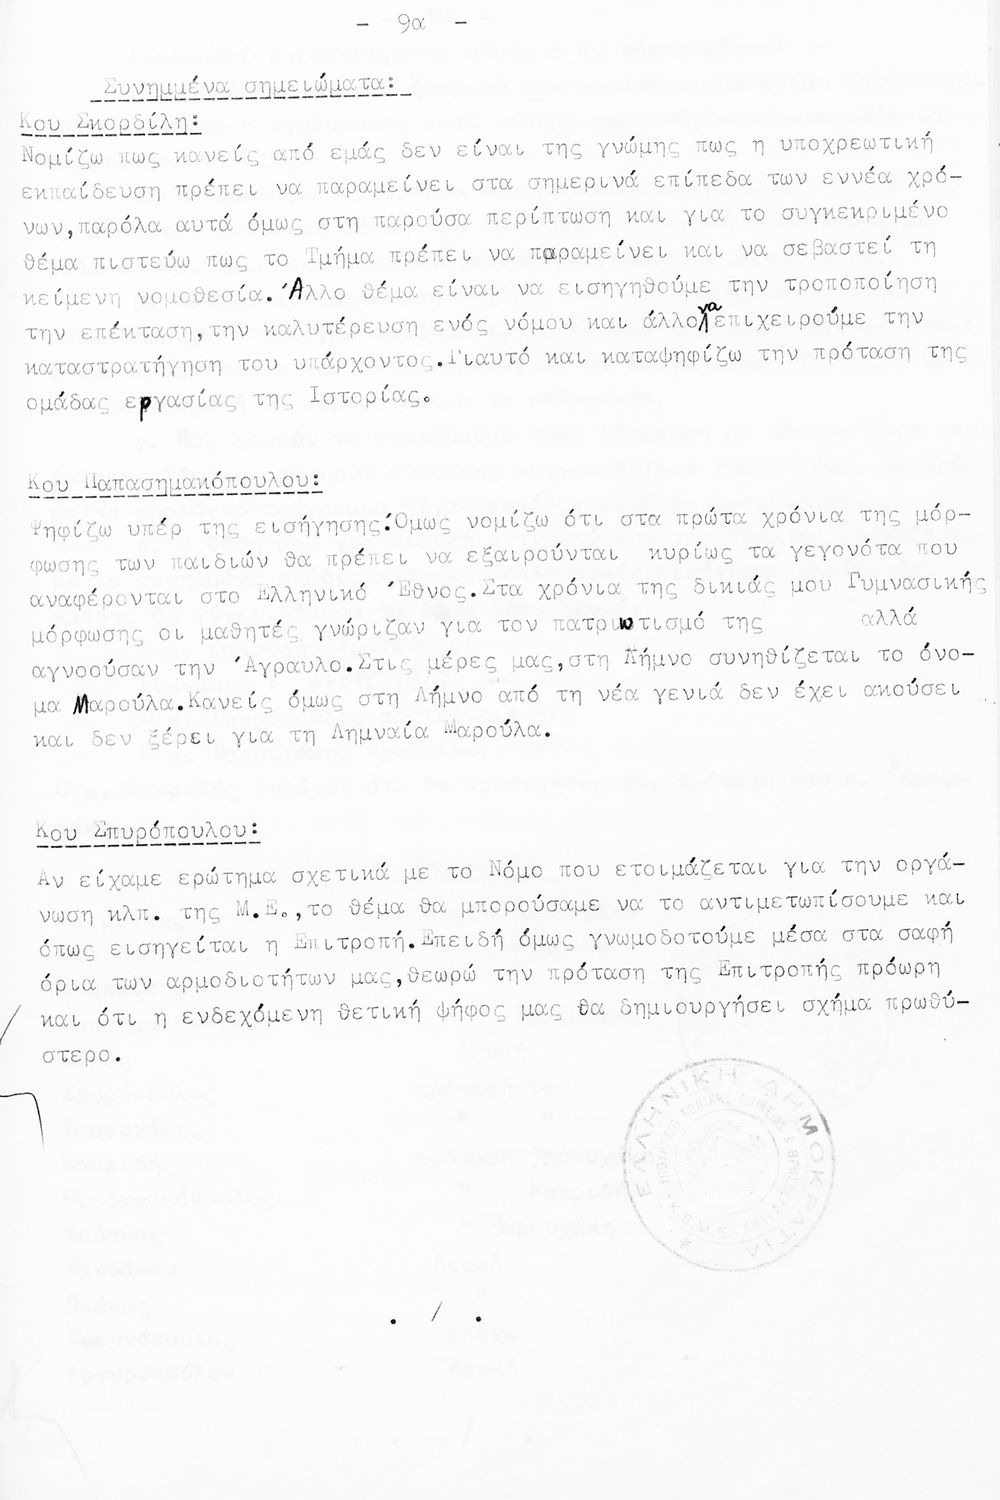 - 9α -
Συνημμένα σημειώματα:
Κου Σκορδίλη:
Νομίζω πως κανείς από εμάς δεν είναι της γνώμης πως η υποχρεωτική
εκπαίδευση πρέπει να παραμείνει στα σημερινά επίπεδα των εννέα χρό-
νων,παρόλα αυτά όμως στη παρούσα περίπτωση και για το συγκεκριμένο
θέμα πιστεύω πως το Τμήμα πρέπει να παραμείνει και να σεβαστεί τη
κείμενη νομοθεσία.Άλλο θέμα είναι να εισηγηθούμε την τροποποίηση
την επέκταση,την καλυτέρευση ενός νόμου και άλλο να επιχειρούμε την
καταστρατήγηση του υπάρχοντος.Γιαυτό και καταψηφίζω την πρόταση της
ομάδας εργασίας της Ιστορίας.
Κου Παπασημακόπουλου:
Ψηφίζω υπέρ της εισήγησης.Όμως νομίζω ότι στα πρώτα χρόνια της μόρ-
φωσης των παιδιών θα πρέπει να εξαιρούνται κυρίως τα γεγονότα που
αναφέρονται στο Ελληνικό Έθνος.Στα χρόνια της δικιάς μου Γυμνασικής
μόρφωσης οι μαθητές γνώριζαν για τον πατριωτισμό της αλλά
αγνοούσαν την Άγραυλο.Στις μέρες μας,στη Λήμνο συνηθίζεται το όνο-
μα Μαρούλα.Κανείς όμως στη Λήμνο από τη νέα γενιά δεν έχει ακούσει
και δεν ξέρει για τη Λημναία Μαρούλα.
Κου Σπυρόπουλου:
Αν είχαμε ερώτημα σχετικά με το Νόμο που ετοιμάζεται για την οργά-
νωση κλπ. της Μ.Ε.,το θέμα θα μπορούσαμε να το αντιμετωπίσουμε και
όπως εισηγείται η Επιτροπή.Επειδή όμως γνωμοδοτούμε μέσα στα σαφή
όρια των αρμοδιοτήτων μας,θεωρώ την πρόταση της Επιτροπής πρόωρη
και ότι η ενδεχόμενη θετική ψήφος μας θα δημιουργήσει σχήμα πρωθύ-
στερο.
ΕΛΛΗΝΙΚΗ ΔΗΜΟΚΡΑΤΙΑ
. / .